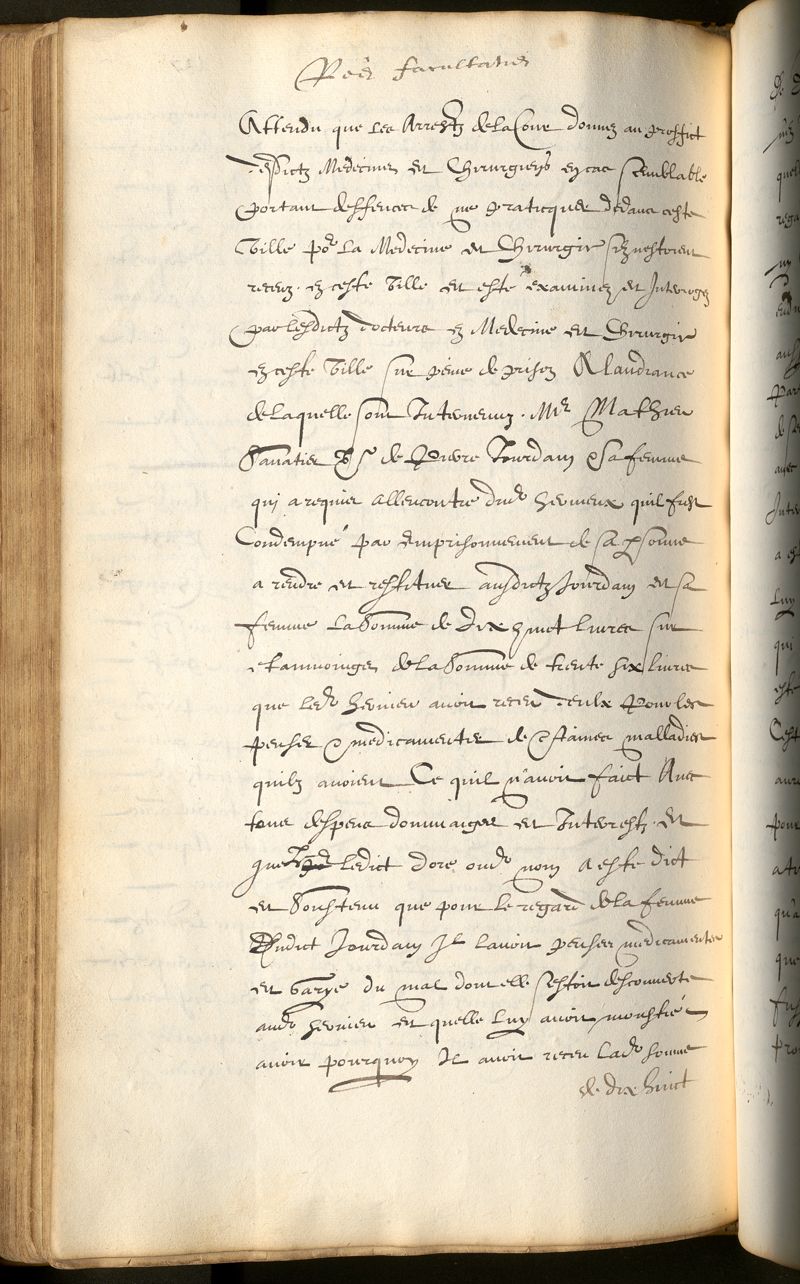 Res facultatis
Attendu que les Arrestz de la Cour donnez au proffict
desdictz Medecins et Chirurgiens en cas semblable
portant deffences de ne practicquer dedans ceste
Ville po^r la Medecine et Chirurgie silz nestoient
receuz en ceste Ville et esté examinez et Interrogez
par lesdictz docteurs en Medecine et Chirurgie
en ceste Ville sur peine de prison A laudiance
de laquelle sont Intervenuz M^e Mathieu
Sauatier de Pierre Jourdain & sa femme
qui a requis allencontre dud^t hervieux quil fust
Condempné par emprisonnement de sa personne
a rendre et restituer ausdictz Jourdain et sa
femme la Somme de dix huict livres sur
et tantmoings de la Somme de trente six livres
que led^t hervieu avoit receu deulx Pour les
penser & medicamenter de certaines malladies
quilz avoient Ce quil n'avoit faict Avec
tous despens dommaiges et Interestz et
que ledict dore oud^t nom A esté dict
et Soustenu que pour le regard de la femme
Dudict Jourdain Il lavoit pensee medicamentee
et garye du mal dont elle sestoit descouverte
aud^t hervieu et quelle luy avoit monstré
avoir pourquoy Il avoit receu lad^e somme
de dix huict